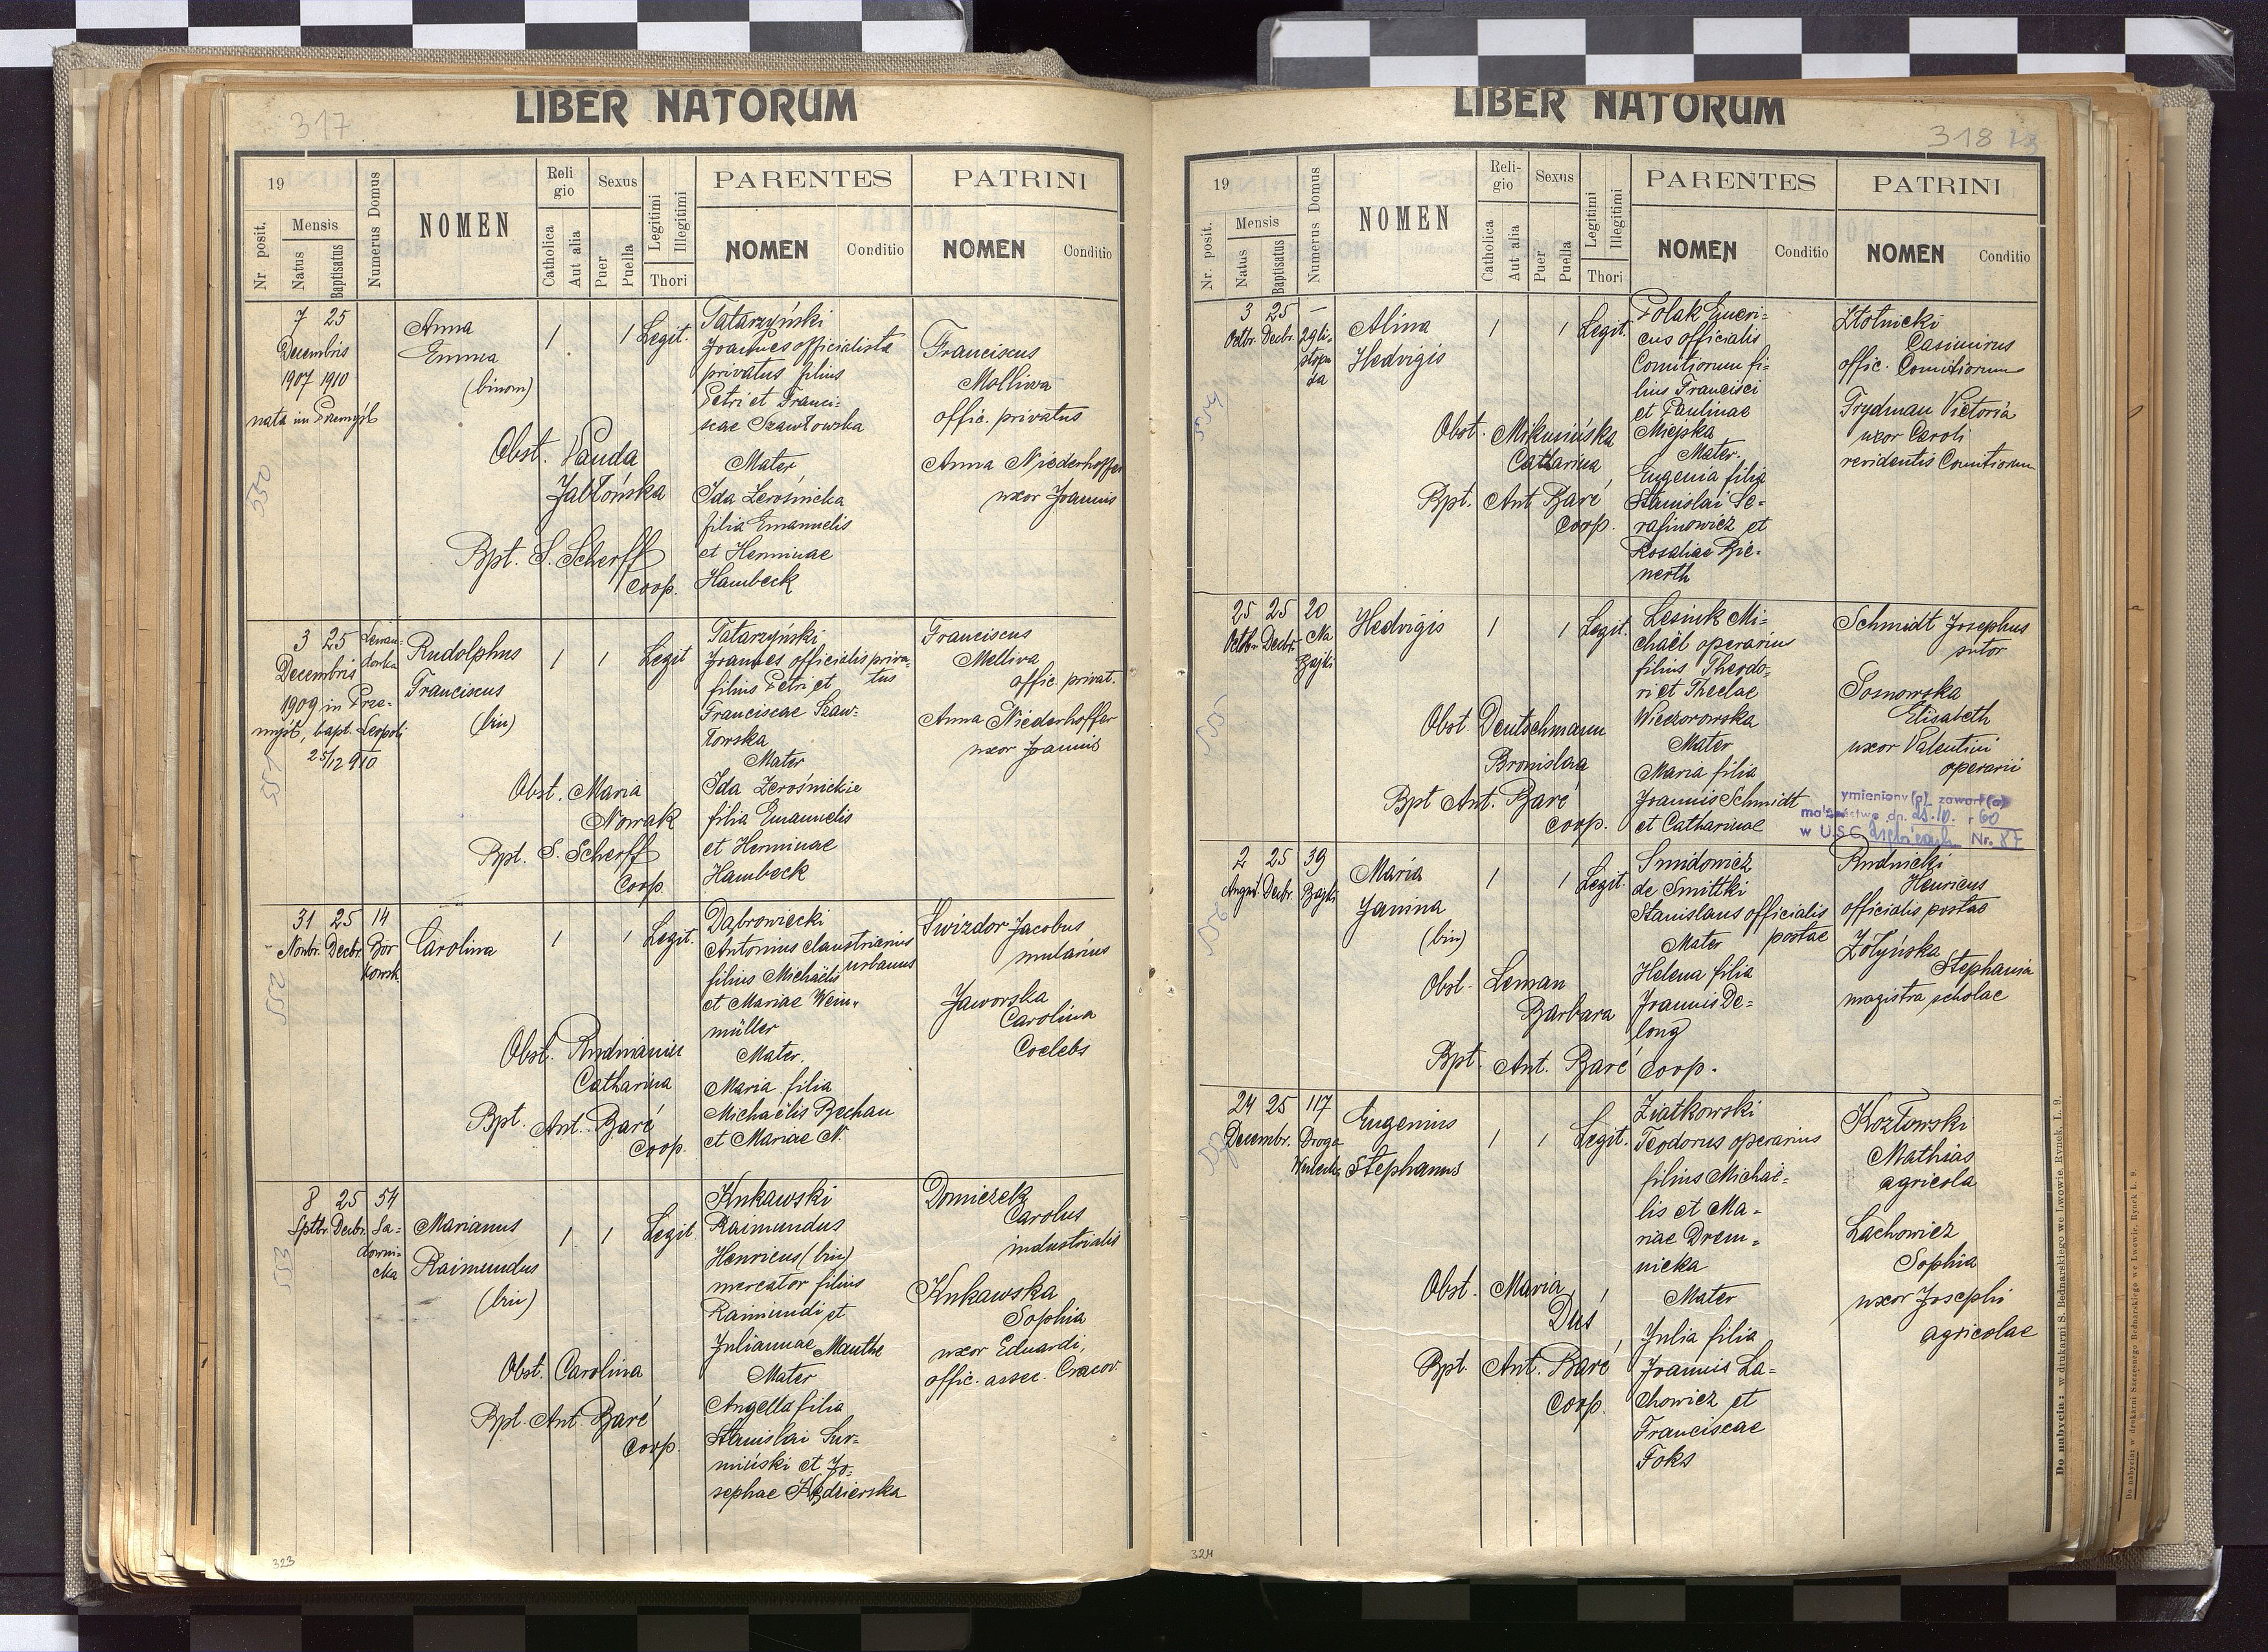 LIBER NATORUM
317
19
Nr posit.
Mensis
Natus
Baptisatus
Numerus Domus
NOMEN
Reli
gio
Catholica
Aut alia
Sexus
Puer
Puella
Legitimi
Illegitimi
Thori
PARENTES
NOMEN
Conditio
PATRINI
NOMEN
Conditio
7 25
Decembris
1907 1910
nata in Przemyśl
550
Anna
Emma
(binom)
1 1 Legit.
Obst. Vanda
Jabłońska
Bpt. S. Scherff
Coop.
Tatarzyński
Joannes officialista
privatus filius
Petri et Franci-
scae Szawłowska
Mater
Ida Zerośnicka
filia Emanuelis
et Herminae
Hambeck
Franciscus
Molliwa
offic. privatus
Anna Niederhoffer
uxor Joannis
3 25
Decembris
1909 in Prze-
myśl, bapt. Leopoli
25/12 910
551
Rudolphus
Franciscus
(bin)
1 1 Legit
Obst. Maria
Nowak
Bpt. S. Scherff
Coop
Tatarzyński
Joannes officialis priva-
tus
filius Petri et
Franciscae Szaw-
łowska
Mater
Ida Zerośnickie
filia Emanuelis
et Herminae
Hambeck
Franciscus
Melliva
offic. privat.
Anna Niederhoffer
uxor Joannis
31 25 14
Novbr. Decbr. Bor
kowsk
552
Carolina
1 1 Legit.
Obst. Rudnianin
Catharina
Bpt. Ant. Baré
Coop.
Dąbrowiecki
Antonius claustrienius
urbanus
filius Michaëlis
et Mariae Wein-
müller
Mater.
Maria filia
Michaëlis Bechau
et Mariae N.
Świzdor Jacobus
mularius
Jaworska
Carolina
Coelebs
8 25 54
Sptbr. Decbr. Sa-
downi-
cka
553
Marianus
Raimundus
(bin)
1 1 Legit
Obst. Carolina
Bpt. Ant. Baré
Coop.
Kukawski
Raimundus
Henricus (bin)
mercator filius
Raimundi et
Juliannae Mauthe
Mater
Angella filia
Stanislai Sur-
miński et Jo-
sephae Kędzierska
Domiczek
Carolus
industrialis
Kukawska
Sophia
uxor Eduardi,
offic. assec. Cracov.
323
LIBER NATORUM
318
19
Nr. posit.
Mensis
Natus
Baptisatus
Numerus Domus
NOMEN
Reli-
gio
Catholica
Aut alia
Sexus
Puer
Puella
Legitimi
Illegitimi
Thori
PARENTES
NOMEN
Conditio
PATRINI
NOMEN
Conditio
3 25 –
Octbr. Decbr. 29 li-
stopa
da
554
Alina
Hedvigis
1 1 Legit.
Obst. Mikusińska
Catharina
Bpt. Ant Baré
Coop.
Polak Emeri-
cus officialis
Comitiorum fi-
lius Francisci
et Paulinae
Miejska
Mater.
Eugenia filia
Stanislai Se-
rafinowicz et
Rosaliae Bie-
nerth
Złotnicki
Casimirus
offic. Comitiorum
Frydman Victoria
uxor Caroli
revidentis Comitiorum
25 25 20
Octbr. Decbr. Na
Bajki
555
Hedvigis
1 1 Legit.
Obst. Deutschmann
Bronislava
Bpt Ant. Baré
Coop.
Lesink Mi-
chaël operarius
filius Theodo-
ri et Theclae
Wieczorowska
Mater
Maria filia
Joannis Schmidt
et Catharinae
Schmidt Josephus
sutor
Sosnowska
Elisabeth
uxor Valentini
operarii
ymieniony(a) zawarł(a)
małżeństwo dn. 25.10. r 60
w USC Nr. 87
2 25 39
August Decbr. Bajki
556
Maria
Janina
(bin)
1 1 Legit.
Obst. Leman
Barbara
Bpt. Ant. Baré Coop.
Smidowicz
de Smittki
Stanislaus officialis
postae
Mater
Helena filia
Joannis De-
long
Rudnicki
Henricus
officialis postae
Żołyńska
Stephania
magistra scholae
24 25 117
Decembr. Droga
Wulecka
557
Eugenius
Stephanus
1 1 Legit.
Obst. Maria
Duś
Bpt. Ant. Baré
Coop.
Ziatkowski
Teodorus operarius
filius Michaë-
lis et Ma-
riae Drem-
nicka
Mater
Julia filia
Joannis La-
chowicz et
Franciscae
Foks
Kozłowski
Mathias
agricola
Lachowicz
Sophia
uxor Josephi
agricolae
324
Do nabycia: w drukarni S. Bednarskiego we Lwowie, Rynek, L. 9.
Do nabycia: w drukarni Szczęsnego Bednarskiego we Lwowie, Rynek L. 9.